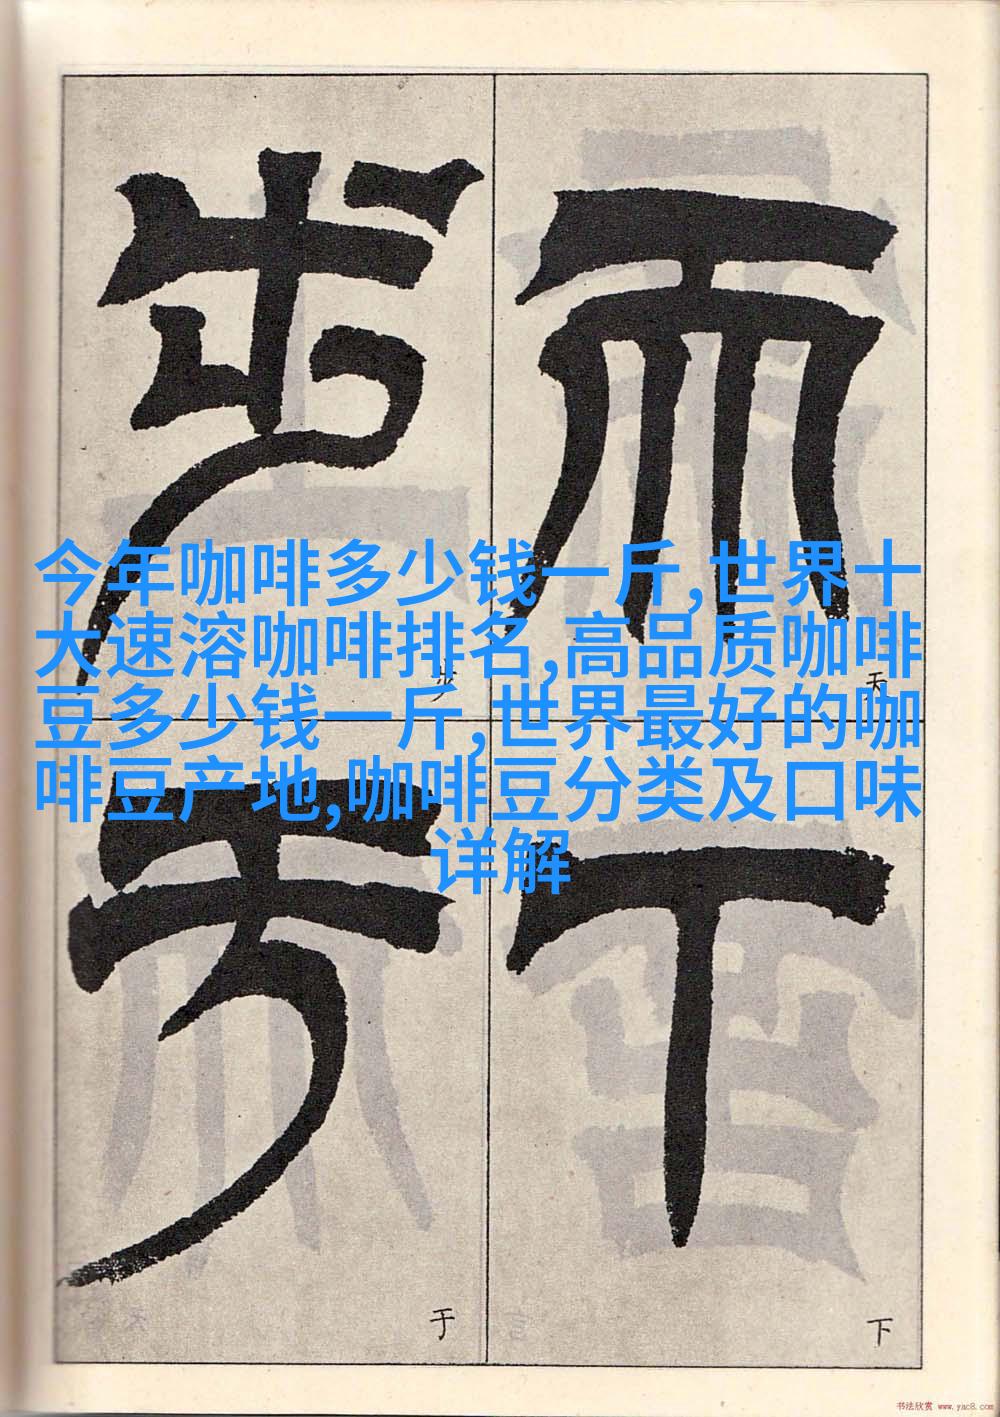 今年咖啡多少钱一斤,世界十
大速溶咖啡排名,高品质咖啡
豆多少钱一斤,世界最好的咖
啡豆产地,咖啡豆分类及口味
详解
天
下
步
于
天
下
步
于
书法欣赏 www.yac8.com